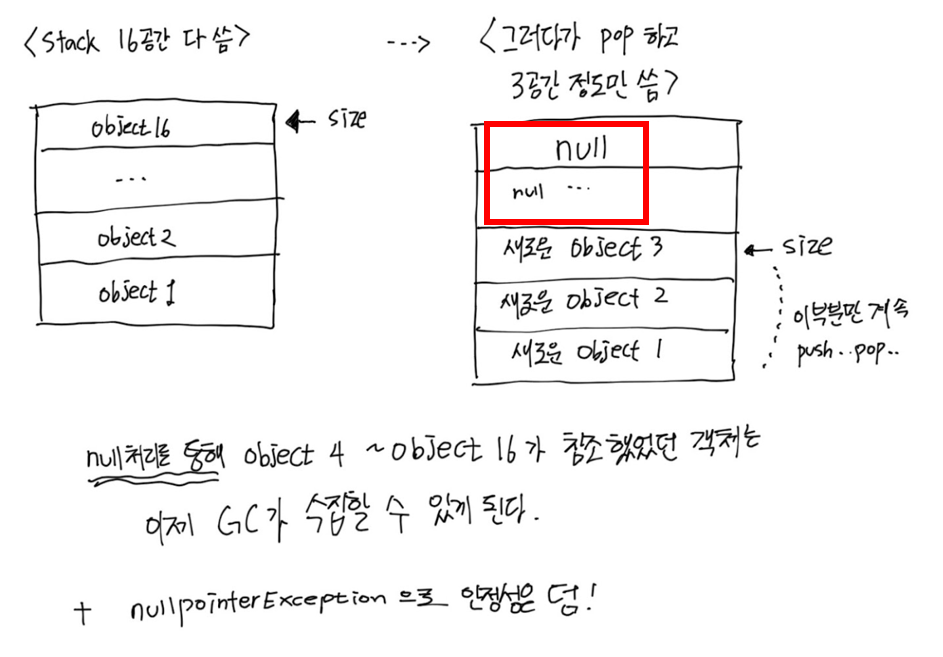 <Stack 16공간 다 씀>
--->
<그러다가 pop 하고
3공간 정도만 씀>
object 16
...
object 2
object 1
← size
null
null ...
새로운 object 3
새로운 object 2
새로운 object 1
← size
이부분만 계속
push..pop..
null처리를 통해 object 4 ~object 16가 참조했었던 객체는
이제 GC가 수집할 수 있게 된다.
+ nullpointerException 으로 안정성은 덤!